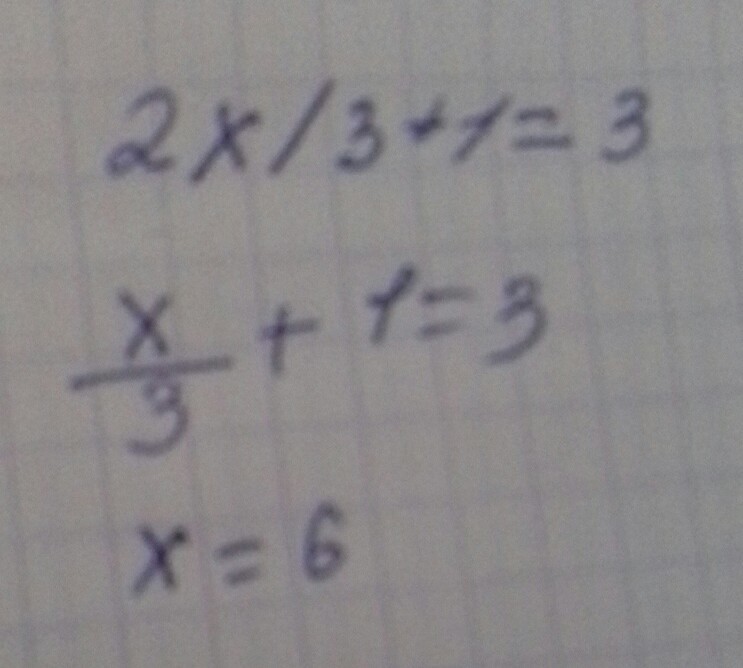 2x/3+1=3
x/3 + 1=3
x=6